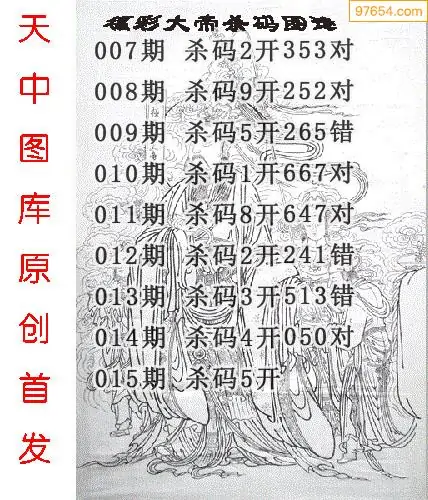 97654.com
福彩大帝杀码图迷
007期 杀码2开353对
008期 杀码9开252对
009期 杀码5开265错
010期 杀码1开667对
011期 杀码8开647对
012期 杀码2开241错
013期 杀码3开513错
014期 杀码4开050对
015期 杀码5开
天中图库原创首发